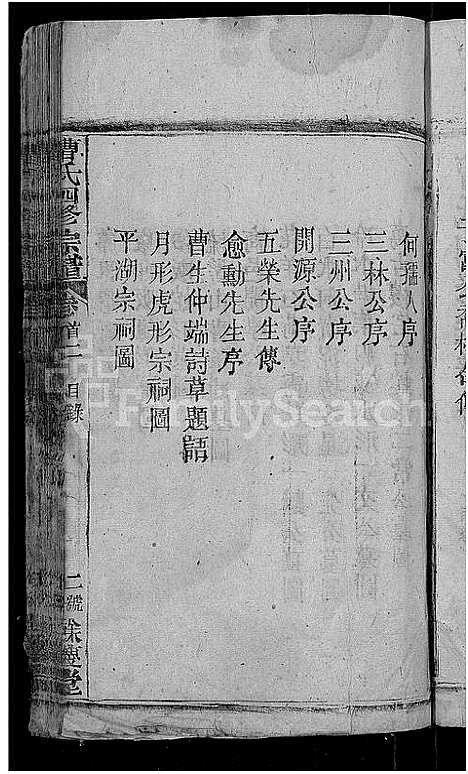 何孺人序
三林公序
三州公序
開源公序
五榮先生傳
愈勳先生序
曹生仲端詩草題語
月形虎形宗祠圖
平湖宗祠圖
曹氏四修宗譜 卷首二 目錄 二號
FamilySearch